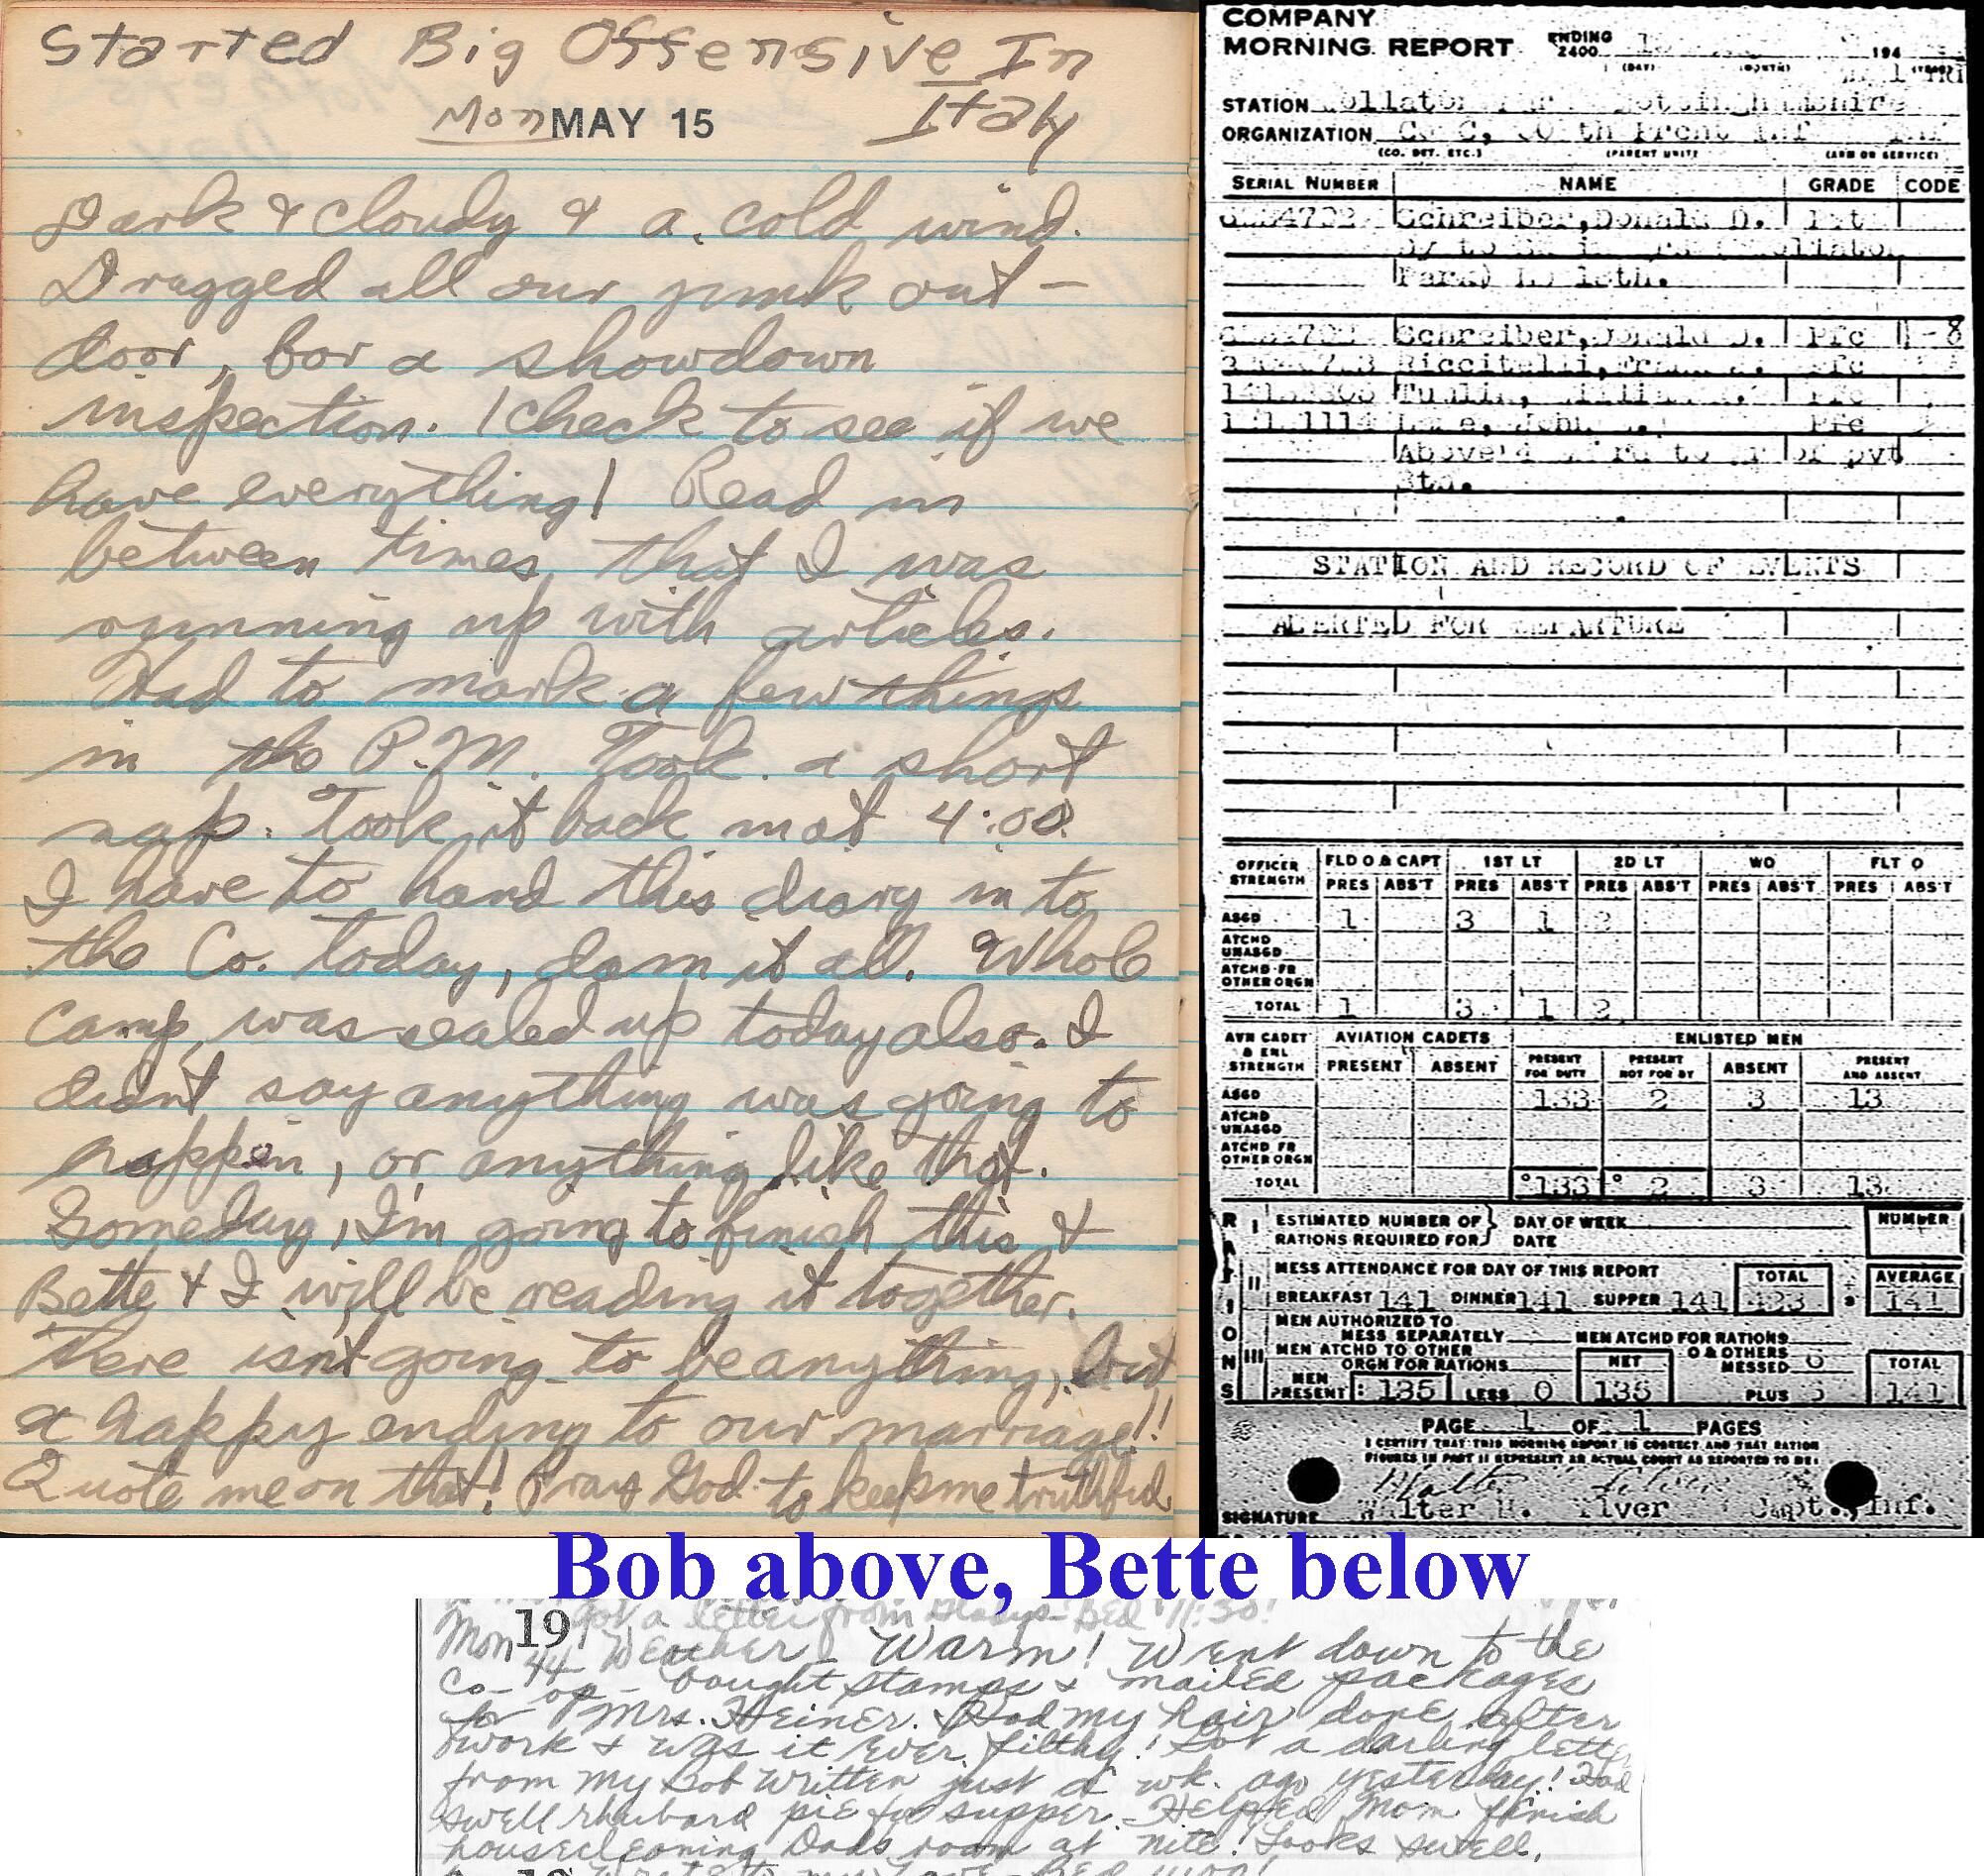 Started Big Offensive In
Italy
Mon MAY 15
Dark & cloudy & a cold wind.
Dragged all our junk out-
door, for a showdown
inspection. (check to see if we
have everything) Read in
between times that I was
running up with articles.
Had to mark a few things
in the P.M. Took a short
nap. Took it back in at 4:00.
I have to hand this diary in to
the Co. today, darn it all. Whole
camp was sealed up today also. I
didn't say anything was going to
happen, or anything like that.
Someday, I'm going to finish this &
Bette & I will be reading it together.
There isn't going to be anything, but
a happy ending to our marriage!!
Quote me on that! Pray God to keep me truthful
COMPANY
MORNING REPORT ENDING 2400 194
(DAY) (MONTH) (YEAR)
STATION
ORGANIZATION Co C,
(CO. DET. ETC.) (PARENT UNIT) (ARM OR SERVICE)
SERIAL NUMBER NAME GRADE CODE
Schreiber, Donald D. Pvt
Park)
Schreiber, Donald D. Pfc
Riccitelli, Pfc
Pfc
Pfc
Above 4 pvt
STATION AND RECORD OF EVENTS
ALERTED FOR DEPARTURE
OFFICER STRENGTH FLD O & CAPT 1ST LT 2D LT WO FLT O
PRES ABS'T PRES ABS'T PRES ABS'T PRES ABS'T PRES ABS'T
ASGD 1 3 1 2
ATCHD UNASGD
ATCHD FR OTHER ORGN
TOTAL 1 3 1 2
AVN CADET & ENL STRENGTH AVIATION CADETS ENLISTED MEN
PRESENT ABSENT PRESENT FOR DUTY PRESENT NOT FOR DY ABSENT PRESENT AND ABSENT
ASGD 133 2 3 13
ATCHD UNASGD
ATCHD FR OTHER ORGN
TOTAL 133 2 3 13
RATIONS
I ESTIMATED NUMBER OF RATIONS REQUIRED FOR } DAY OF WEEK DATE NUMBER
II MESS ATTENDANCE FOR DAY OF THIS REPORT TOTAL AVERAGE
BREAKFAST 141 DINNER 141 SUPPER 141 423 141
MEN AUTHORIZED TO MESS SEPARATELY MEN ATCHD FOR RATIONS
III MEN ATCHD TO OTHER ORGN FOR RATIONS NET O & OTHERS MESSED 6 TOTAL
MEN PRESENT: 135 LESS 0 135 PLUS 141
PAGE 1 OF 1 PAGES
I CERTIFY THAT THIS MORNING REPORT IS CORRECT AND THAT RATION
FIGURES IN PART II REPRESENT AN ACTUAL COUNT AS REPORTED TO ME:
SIGNATURE Walter Capt., Inf.
Bob above, Bette below
got a letter from Gladys - Bed 11:30!
Mon 19 44 Weather Warm! Went down to the
Co-op - bought stamps & mailed packages
for Mrs. Heiner. Had my hair done after
work & was it ever filthy! Got a darling letter
from my Bob written just a wk. ago yesterday! Had
swell rhubarb pie for supper - Helped Mom finish
housecleaning Dads room at nite! Looks swell.